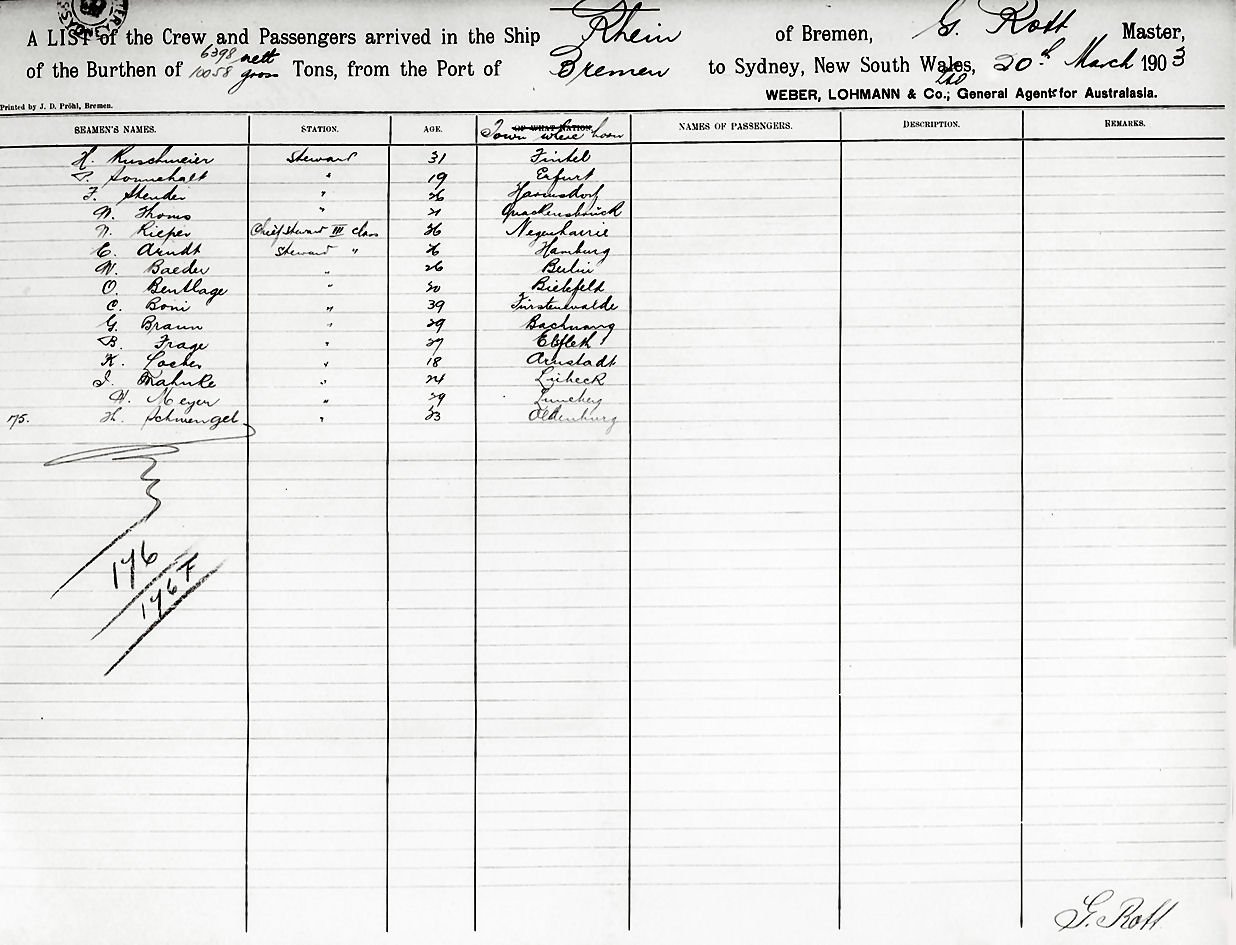 A LIST of the Crew and Passengers arrived in the Ship Rhein of Bremen, G. Rott Master,
of the Burthen of 6398 nett 10058 gross Tons, from the Port of Bremen to Sydney, New South Wales, 20th March 1903
WEBER, LOHMANN & Co.; Ltd General Agents for Australasia.
Printed by J. D. Pröhl, Bremen.
SEAMEN'S NAMES. STATION. AGE. OF WHAT NATION. Town where born NAMES OF PASSENGERS. DESCRIPTION. REMARKS.
H. Ruschmeier Steward 31 Fintel
Sonnehalt " 19 Erfurt
F. Stender " 26 Harmsdorf
W. Thoms " 21 Quackenbrück
Rieper Chief Steward III class 36
C. Arndt Steward " Hamburg
W. Baeder " 26 Berlin
O. Bentlage " 20 Bielefeld
C. Boni " 39 Fürstenwalde
G. Braun " 29 Backnang
B. Frage " 27 Elsfleth
K. " 18 Arnstadt
J. Mahnke " 24 Lübeck
W. Meyer " 29 Luneberg
75. H. Schwengel " 23 Oldenburg
176
176 F
G. Rott